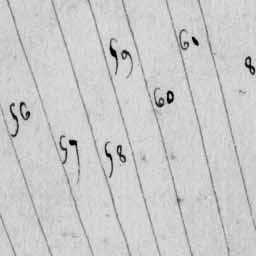 59
60
8
60
56
57
58